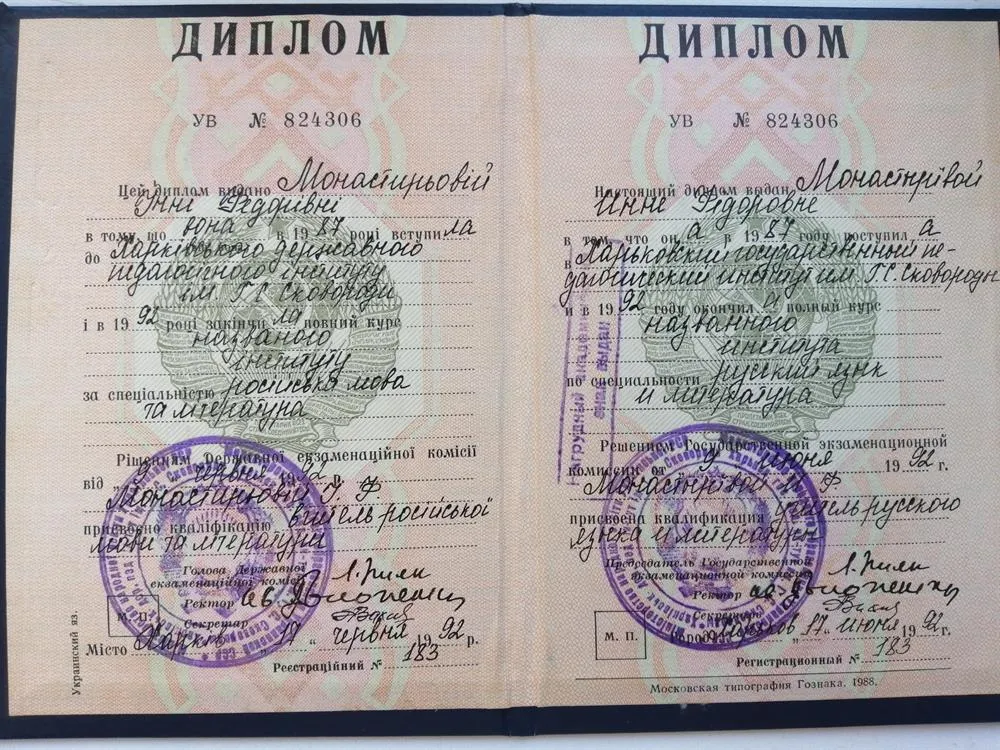 ДИПЛОМ
УВ № 824306
Цей диплом видано Монастирьовій
Інні Федорівні
в тому, що вона в 1987 році вступила
до Харківського державного
педагогічного інституту
ім Г.С. Сковороди
і в 1992 році закінчила повний курс
названого
інституту
за спеціальністю російська мова
та література
Рішенням Державної екзаменаційної комісії
від 9 червня 1992 р.
Монастирьовій І. Ф.
присвоєно кваліфікацію вчитель російської
мови та літератури
Голова Державної
екзаменаційної комісії
Ректор
Секретар
М. П.
Місто Харків „17“ червня 1992 р.
Реєстраційний № 183
Украинский яз.
ДИПЛОМ
УВ № 824306
Настоящий диплом выдан Монастырёвой
Инне Фёдоровне
в том, что она в 1987 году поступила
в Харьковский государственный пе-
дагогический институт им. Г.С. Сковороды
и в 1992 году окончила полный курс
названного
института
по специальности русский язык
и литература
Решением Государственной экзаменационной
комиссии от 9 июня 1992 г.
Монастырёвой И. Ф.
присвоена квалификация учитель русского
языка и литературы
Председатель Государственной
экзаменационной комиссии
Ректор
Секретарь
М. П.
Город Харьков „17“ июня 1992 г.
Регистрационный № 183
Московская типография Гознака. 1988.
Нагрудный академический
знак выдан